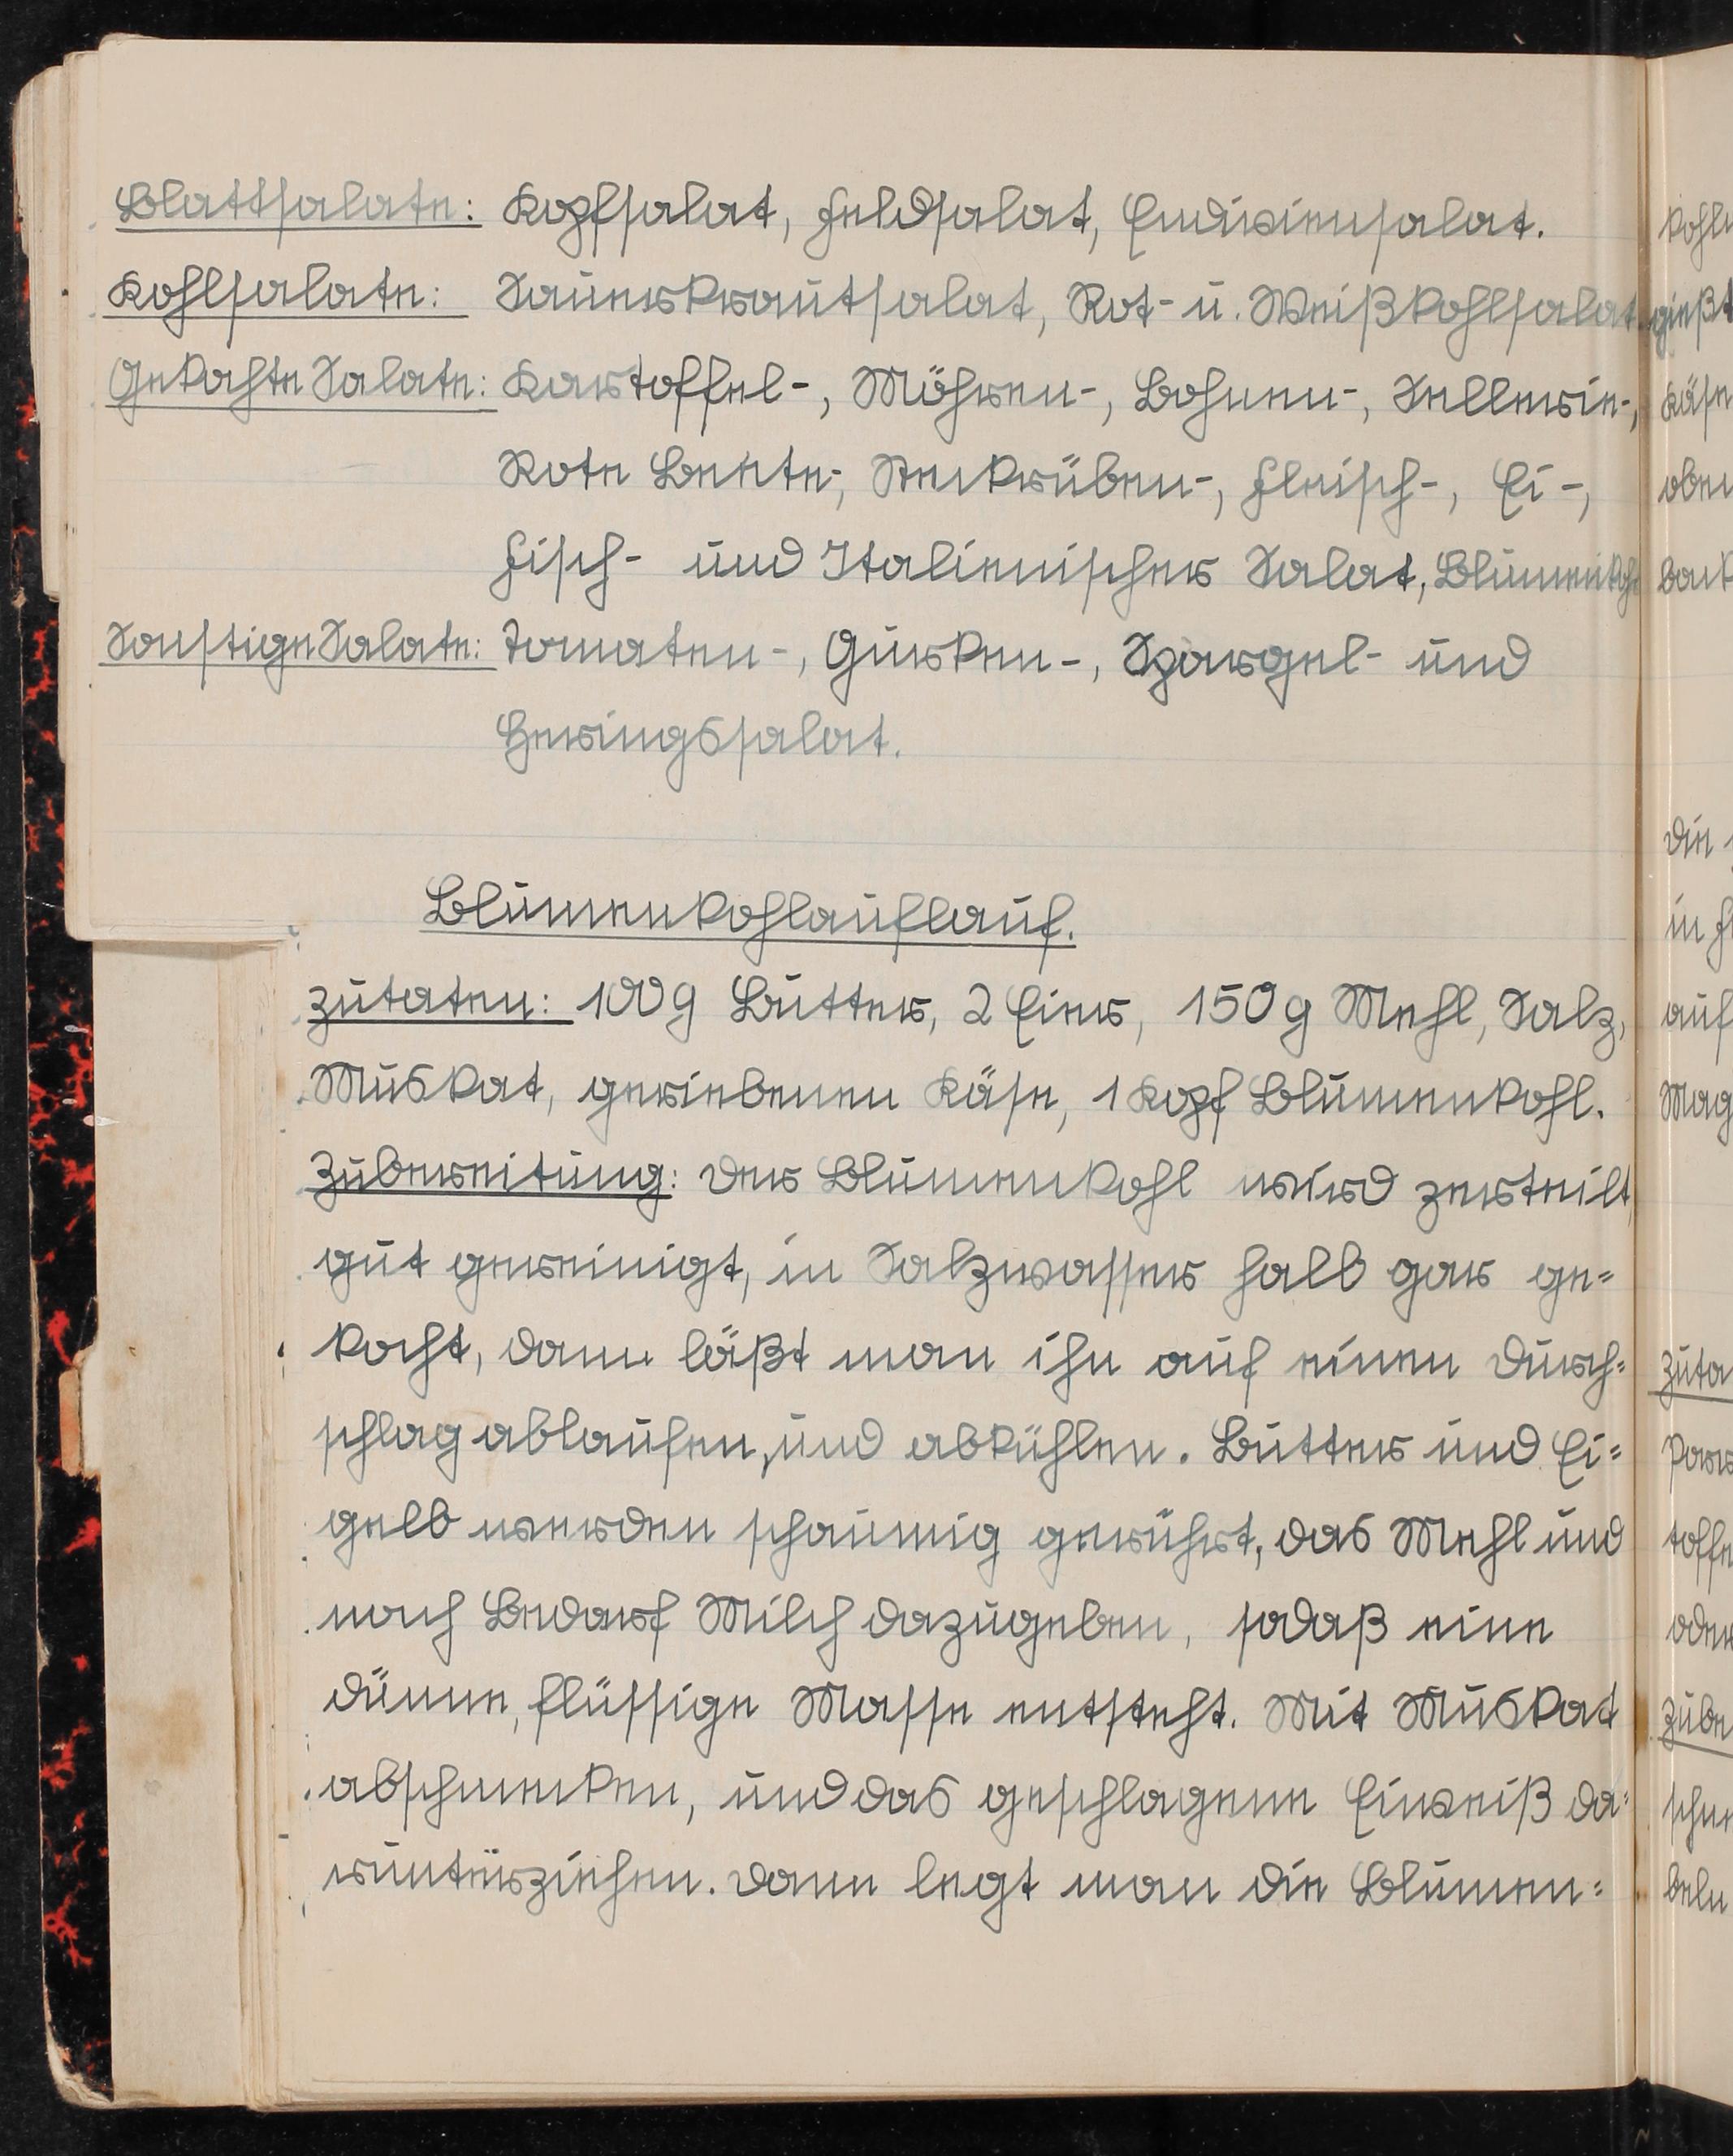 Blattsalate: Kopfsalat, Feldsalat, Endiviensalat.
Kohlsalate: Sauerkrautsalat, Rot- u. Weißkohlsalat.
Gekochte Salate: Kartoffel-, Möhren-, Bohnen-, Sellerie-,
Rote Beete-, Steckrüben-, Fleisch-, Ei-,
Fisch- und Italienischer Salat, Blumenkohl
Sonstige Salate: Tomaten-, Gurken-, Spargel- und
Heringssalat.
Blumenkohlauflauf.
Zutaten: 100g Butter, 2 Eier, 150g Mehl, Salz,
Muskat, geriebenen Käse, 1 Kopf Blumenkohl.
Zubereitung: Der Blumenkohl wird zerteilt,
gut gereinigt, in Salzwasser halb gar ge=
kocht, dann läßt man ihn auf einen Durch=
schlag ablaufen, und abkühlen. Butter und Ei=
gelb werden schaumig gerührt, das Mehl und
nach Bedarf Milch dazugeben, sodaß eine
dünne, flüssige Masse entsteht. Mit Muskat
abschmecken, und das geschlagene Eiweiß da=
runterziehen. Dann legt man die Blumen=
kohl
gießt
Käse
oben
back
die
in
auf
Mag
Zuta
toffe
oder
Zube
schne
beln